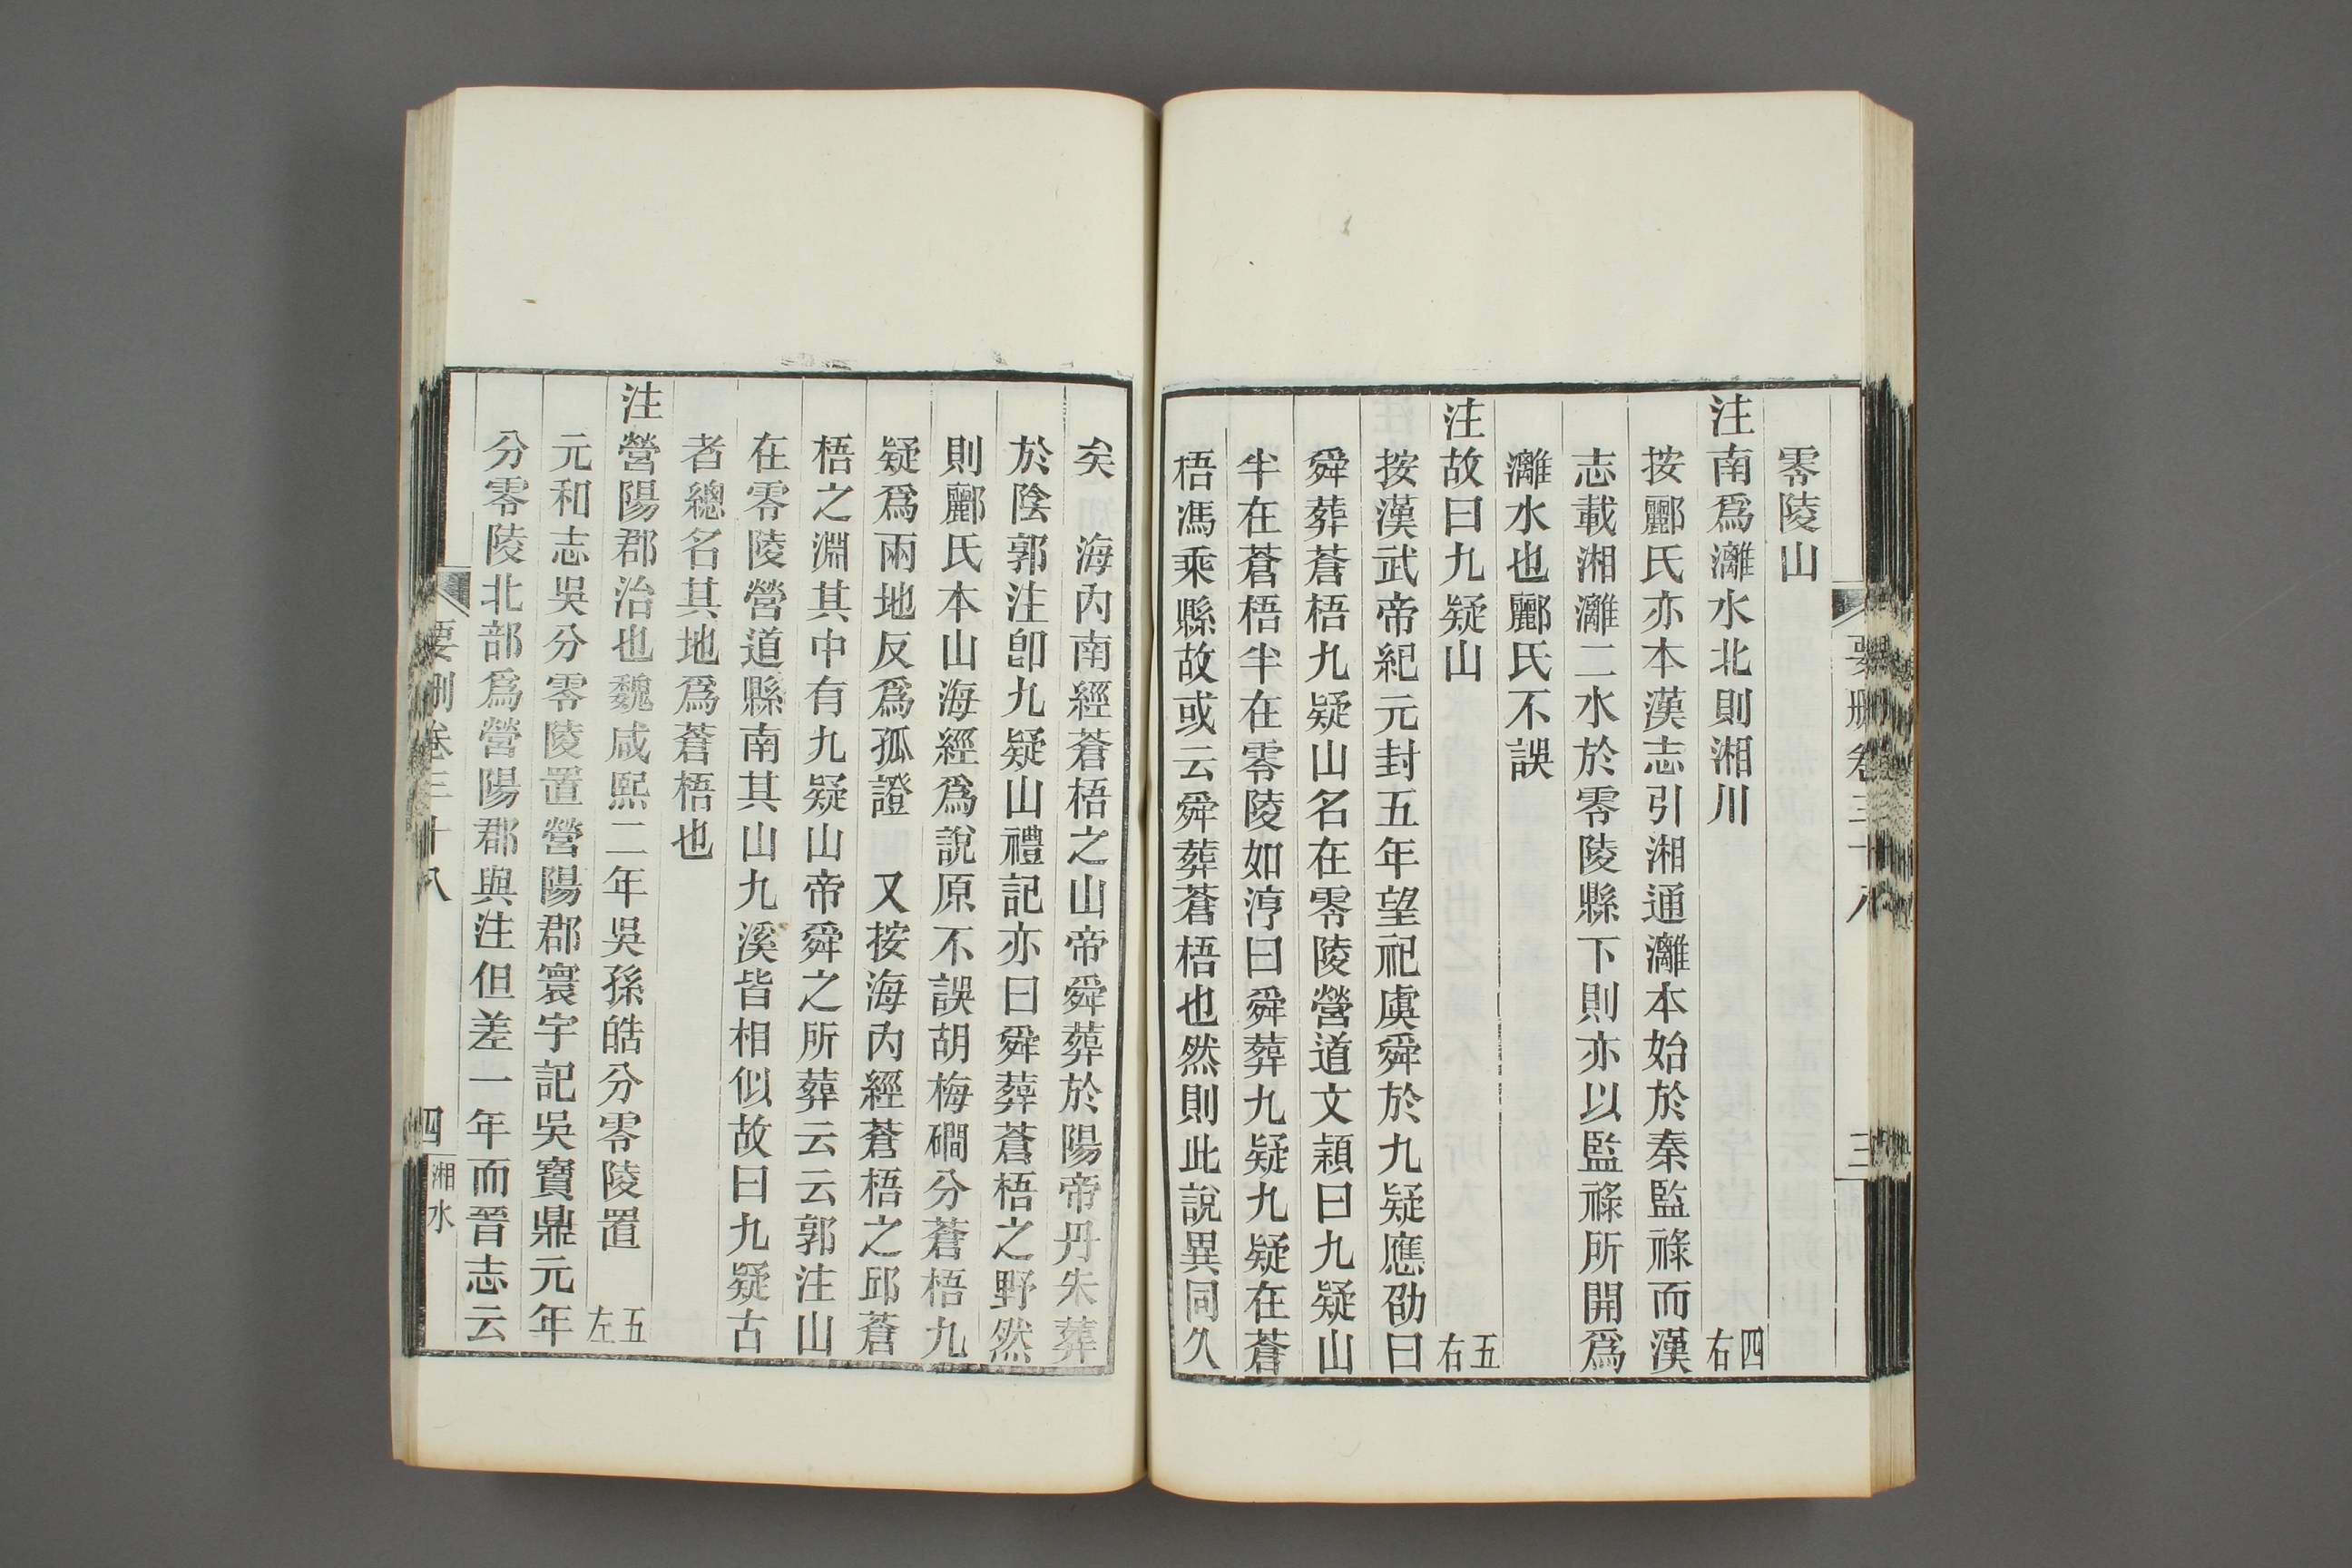 零陵山
注南爲灕水北則湘川 四右
按酈氏亦本漢志引湘通灕本始於秦監祿而漢
志載湘灕二水於零陵縣下則亦以監祿所開爲
灕水也酈氏不誤
注故曰九疑山 五右
按漢武帝紀元封五年望祀虞舜於九疑應劭曰
舜葬蒼梧九疑山名在零陵營道文穎曰九疑山
半在蒼梧半在零陵如淳曰舜葬九疑九疑在蒼
梧馮乘縣故或云舜葬蒼梧也然則此說異同久
要刪卷三十八 三
矣 海內南經蒼梧之山帝舜葬於陽帝丹朱葬
於陰郭注卽九疑山禮記亦曰舜葬蒼梧之野然
則酈氏本山海經爲說原不誤胡梅磵分蒼梧九
疑爲兩地反爲孤證 又按海內經蒼梧之邱蒼
梧之淵其中有九疑山帝舜之所葬云云郭注山
在零陵營道縣南其山九溪皆相似故曰九疑古
者總名其地爲蒼梧也
注營陽郡治也魏咸熙二年吳孫皓分零陵置 五左
元和志吳分零陵置營陽郡寰宇記吳寶鼎元年
分零陵北部爲營陽郡與注但差一年而晉志云
要刪卷三十八 四 湘水